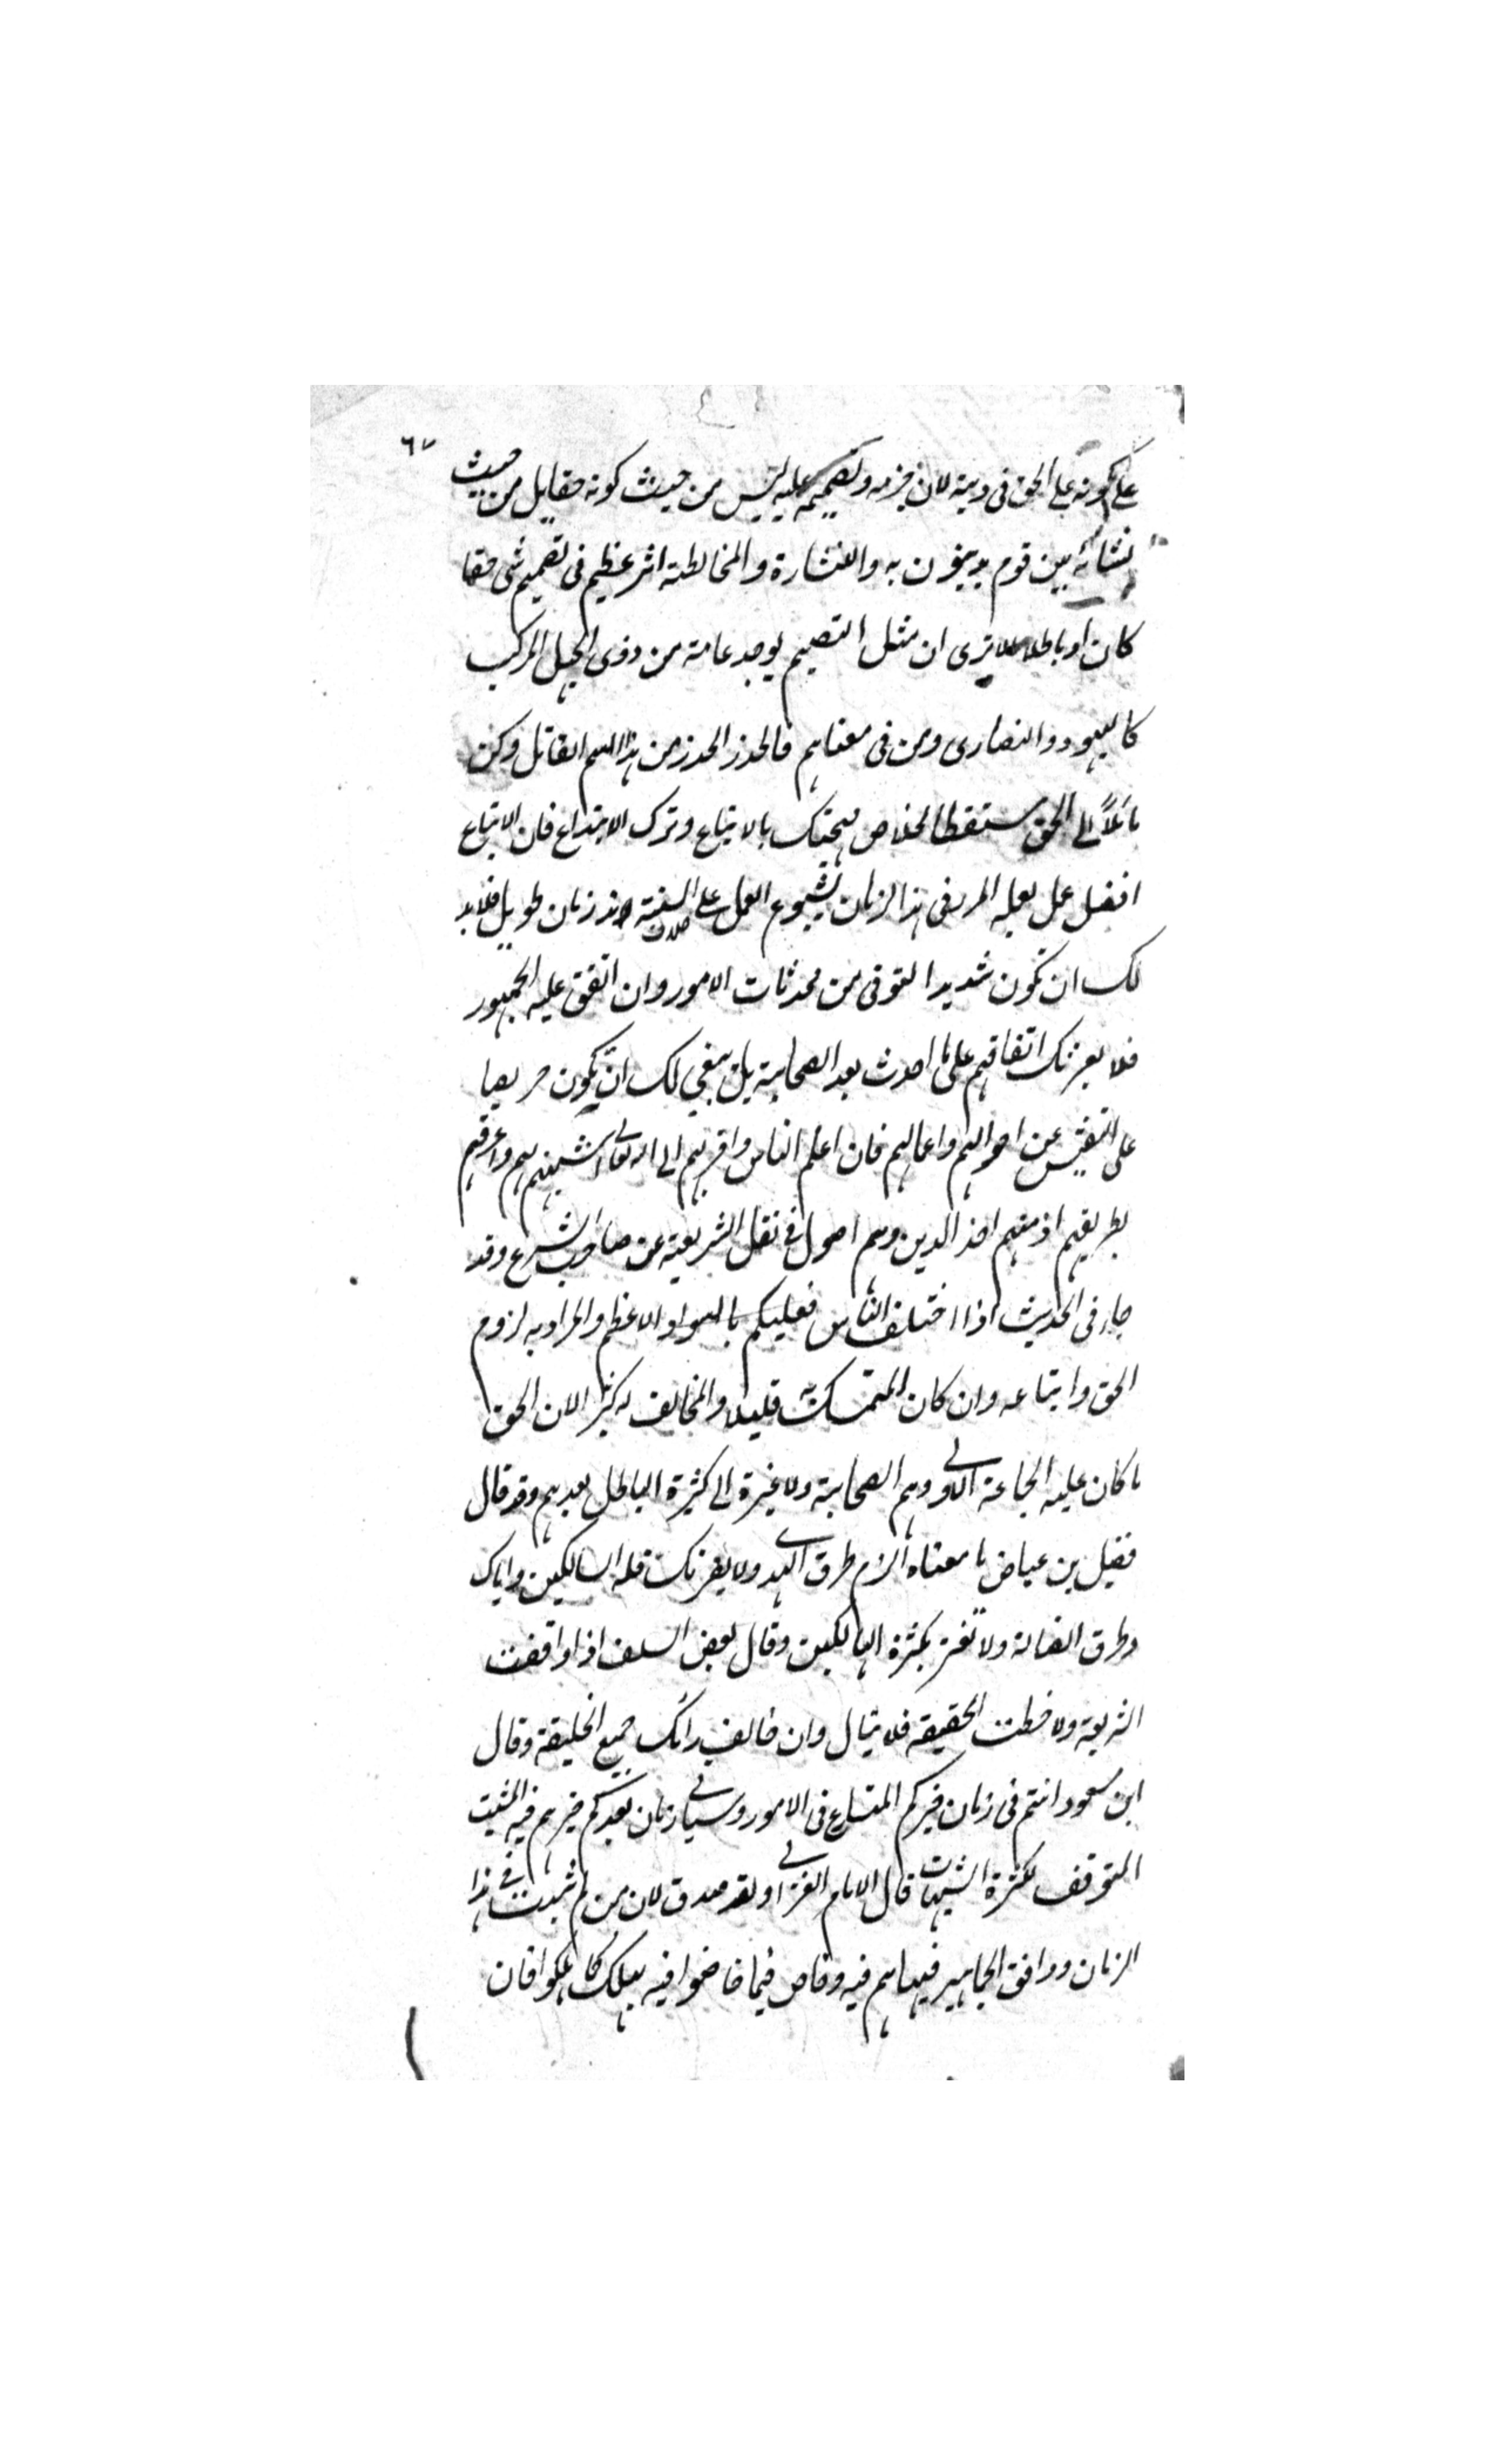 ٦٧
على كونه على الحق فى دينه لان جزمه وتصميمه عليه ليس من حيث كونه حقا بل من حيث
نشأته بين قوم يدينون به والنشارة والمخالطة اثر عظيم فى تصميم شى حقا
كان او باطلا الا يرى ان مثل التصميم يوجد عامة من ذوى الجهل المركب
كاليهود والنصارى ومن فى معناهم فالحذر الحذر من هذا السم القاتل وكن
مائلا الى الحق مستقطا لخلاص مهجتك بالاتباع وترك الابتداع فان الاتباع
افضل عمل يعمله المرء فى هذا الزمان لشيوع العمل على خلاف السنة منذ زمان طويل فلا بد
لك ان تكون شديد التوقى من محدثات الامور وان اتفق عليه الجمهور
فلا يغرنك اتفاقهم على ما احدث بعد الصحابة بل ينبغى لك ان تكون حريصا
على التفتيش عن احوالهم واعمالهم فان اعلم الناس واقربهم الى الله تعالى اشبههم بهم واعرفهم
بطريقهم اذ منهم اخذ الدين وهم اصول فى نقل الشريعة عن صاحب الشرع وقد
جاء فى الحديث اذا اختلف الناس فعليكم بالسواد الاعظم والمراد به لزوم
الحق واتباعه وان كان المتمسك به قليلا والمخالف له كثيرا لان الحق
ما كان عليه الجماعة الاولى وهم الصحابة ولا عبرة الى كثرة الباطل بعدهم وقد قال
فضيل بن عياض ما معناه الزم طرق الهدى ولا يغرنك قلة السالكين واياك
وطرق الضلالة ولا تغتر بكثرة الهالكين وقال بعض السلف اذا وافقت
الشريعة ولاحظت الحقيقة فلا تبال وان خالف رائك جميع الخليقة وقال
ابن مسعود انتم فى زمان خيركم المتسارع فى الامور وسياتى زمان بعدكم خيرهم فيه المتثبت
المتوقف لكثرة الشبهات قال الامام الغزالى ولقد صدق لان من لم يثبت فى هذا
الزمان ووافق الجماهير فيما هم فيه وخاض فيما خاضوا فيه يهلك كما هلكوا فان